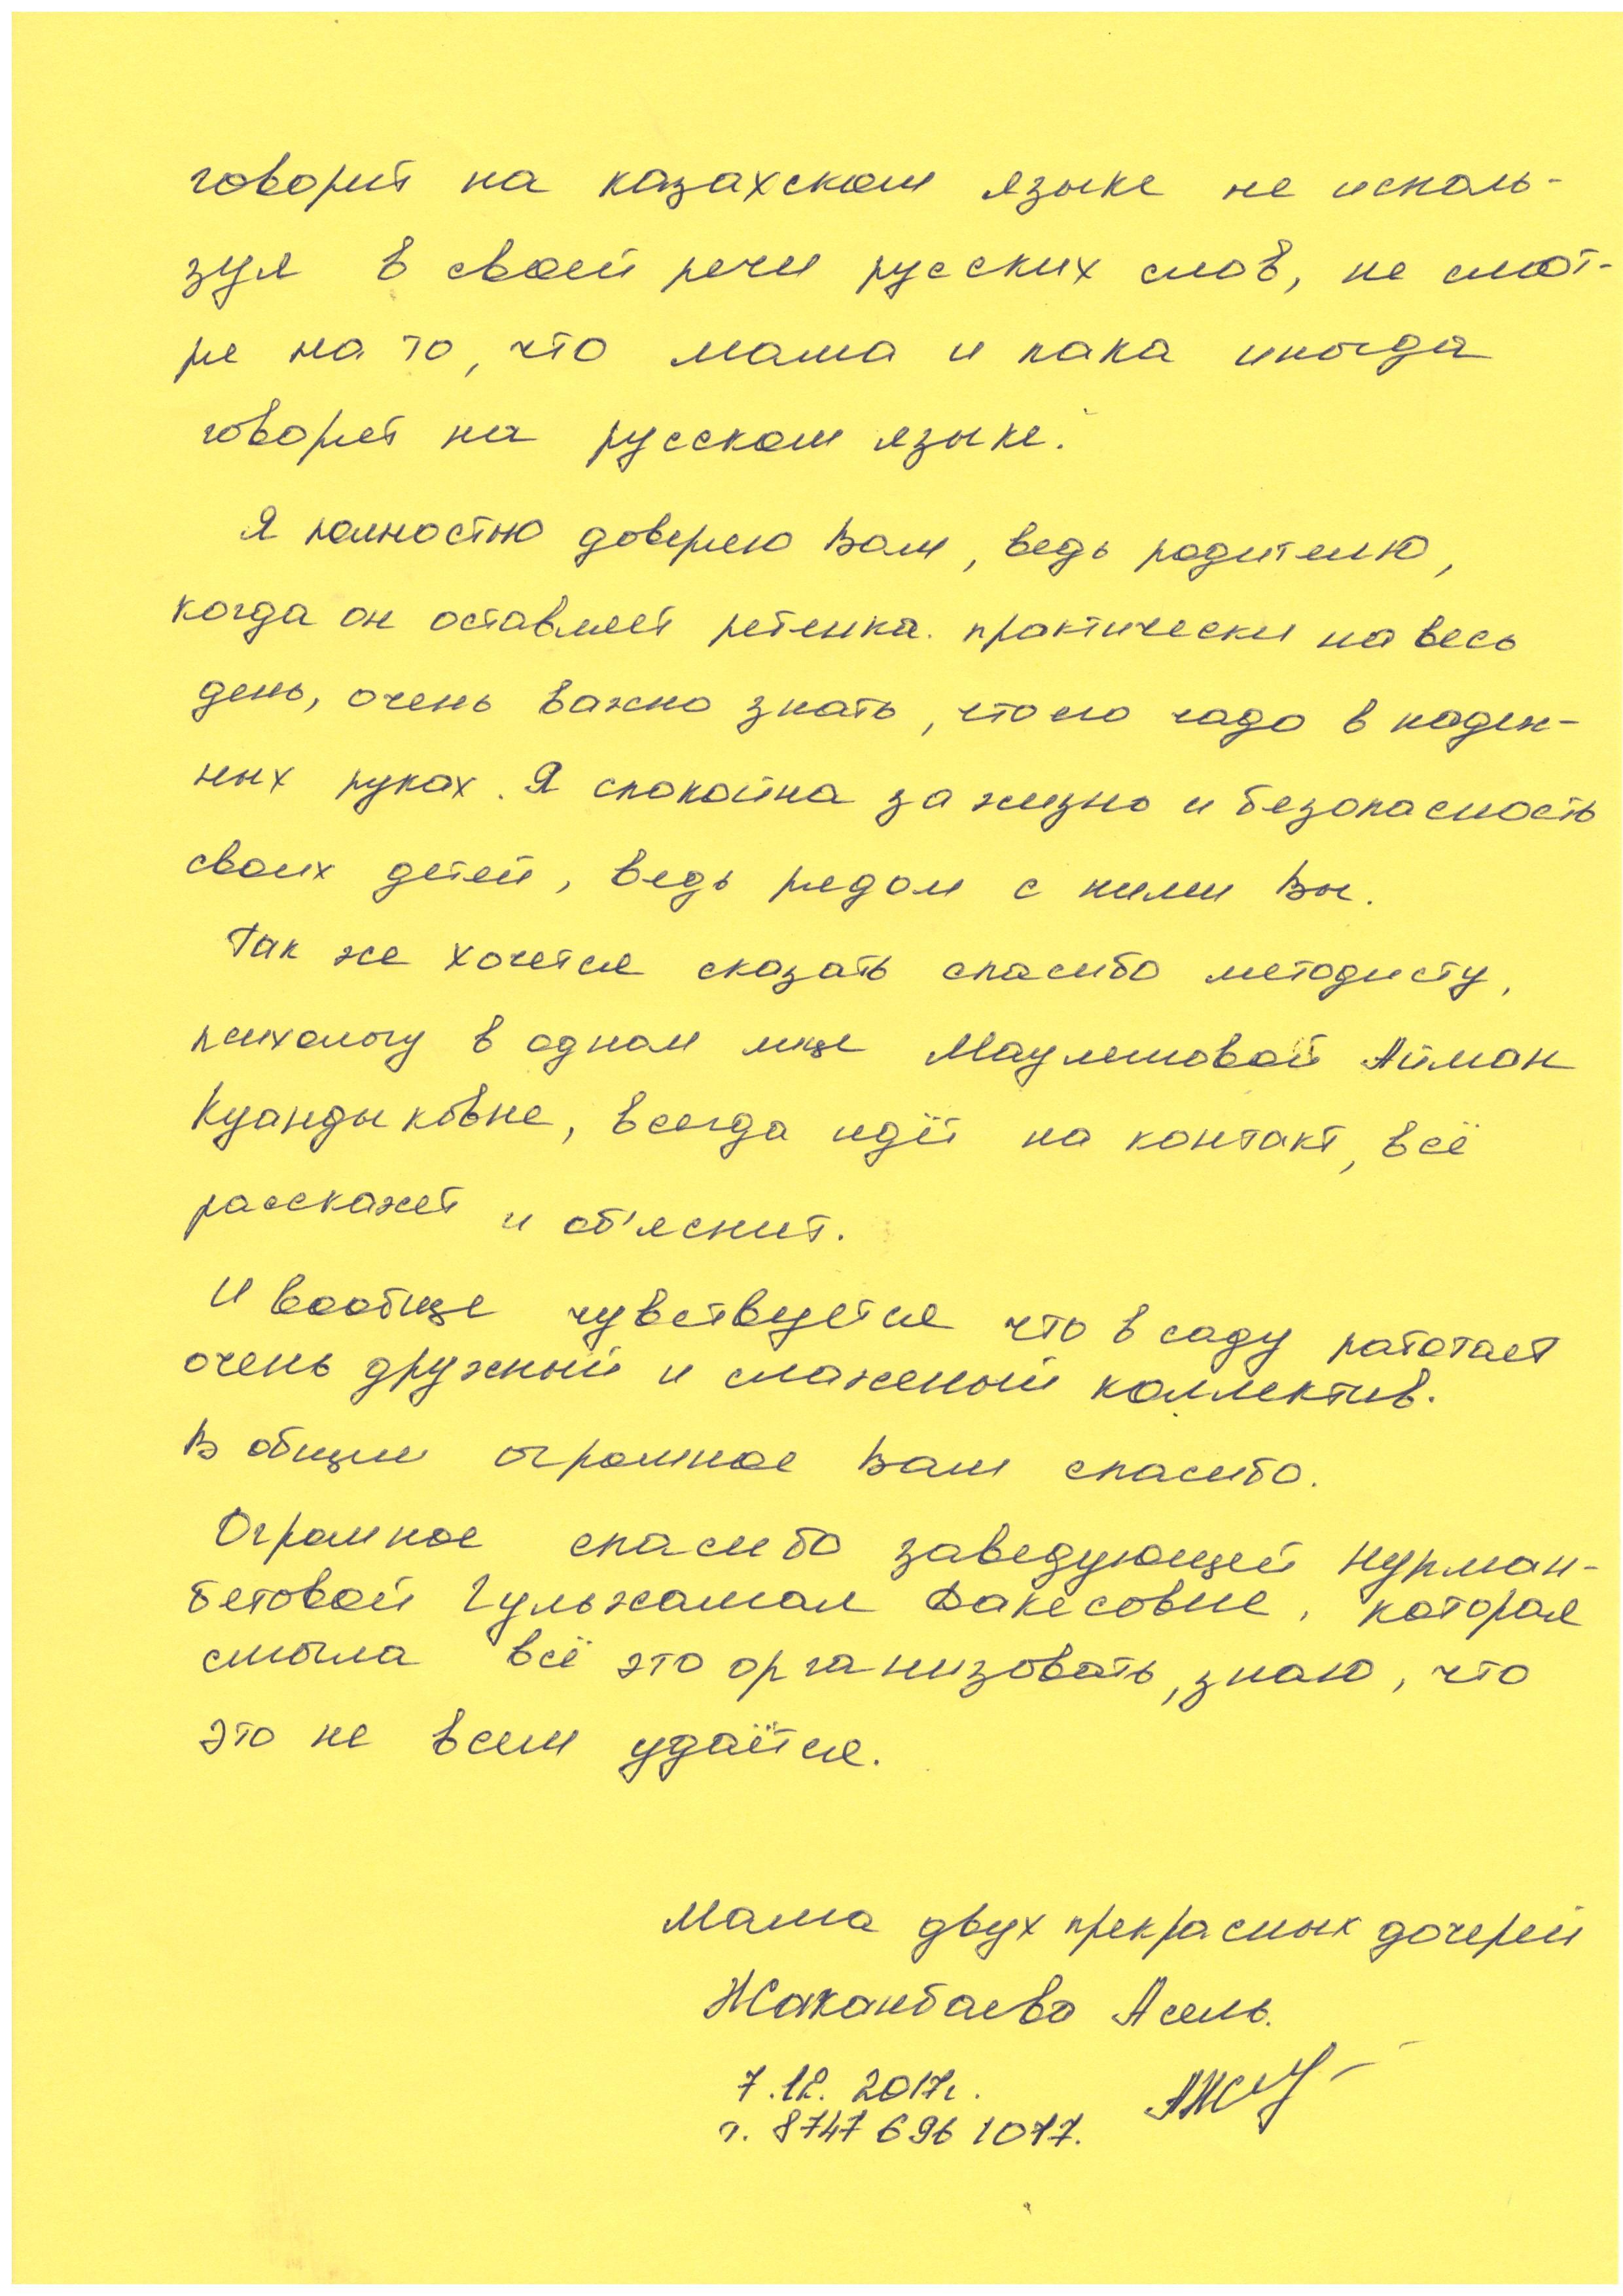 говорит на казахском языке не исполь-
зуя в своей речи русских слов, не смот-
ря на то, что мама и папа иногда
говорят на русском языке.
Я полностью доверяю Вам, ведь родителю,
когда он оставляет ребенка практически на весь
день, очень важно знать, что его чадо в надеж-
ных руках. Я спокойна за жизнь и безопасность
своих детей, ведь рядом с ними Вы.
Так же хочется сказать спасибо методисту,
психологу в одном лице Маулешовой Айман
Куандыковне, всегда идёт на контакт, всё
расскажет и об'яснит.
И вообще чувствуется что в саду работает
очень дружный и слаженый коллектив.
В общем огромное Вам спасибо.
Огромное спасибо заведующей Нурман-
бетовой Гульжамал Факесовне, которая
смогла всё это организовать, знаю, что
это не всем удаётся.
Мама двух прекрасных дочерей
Жаканбаева Асель.
7.12.2017г.
т. 8747 696 1077.